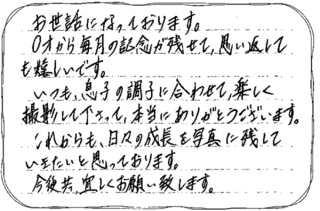 お世話になっております。
0才から毎月の記念が残せて、思い返して
も嬉しいです。
いつも、息子の調子に合わせて、楽しく
撮影して下さって、本当にありがとうございます。
これからも、日々の成長を写真に残して
いきたいと思っております。
今後共、宜しくお願い致します。